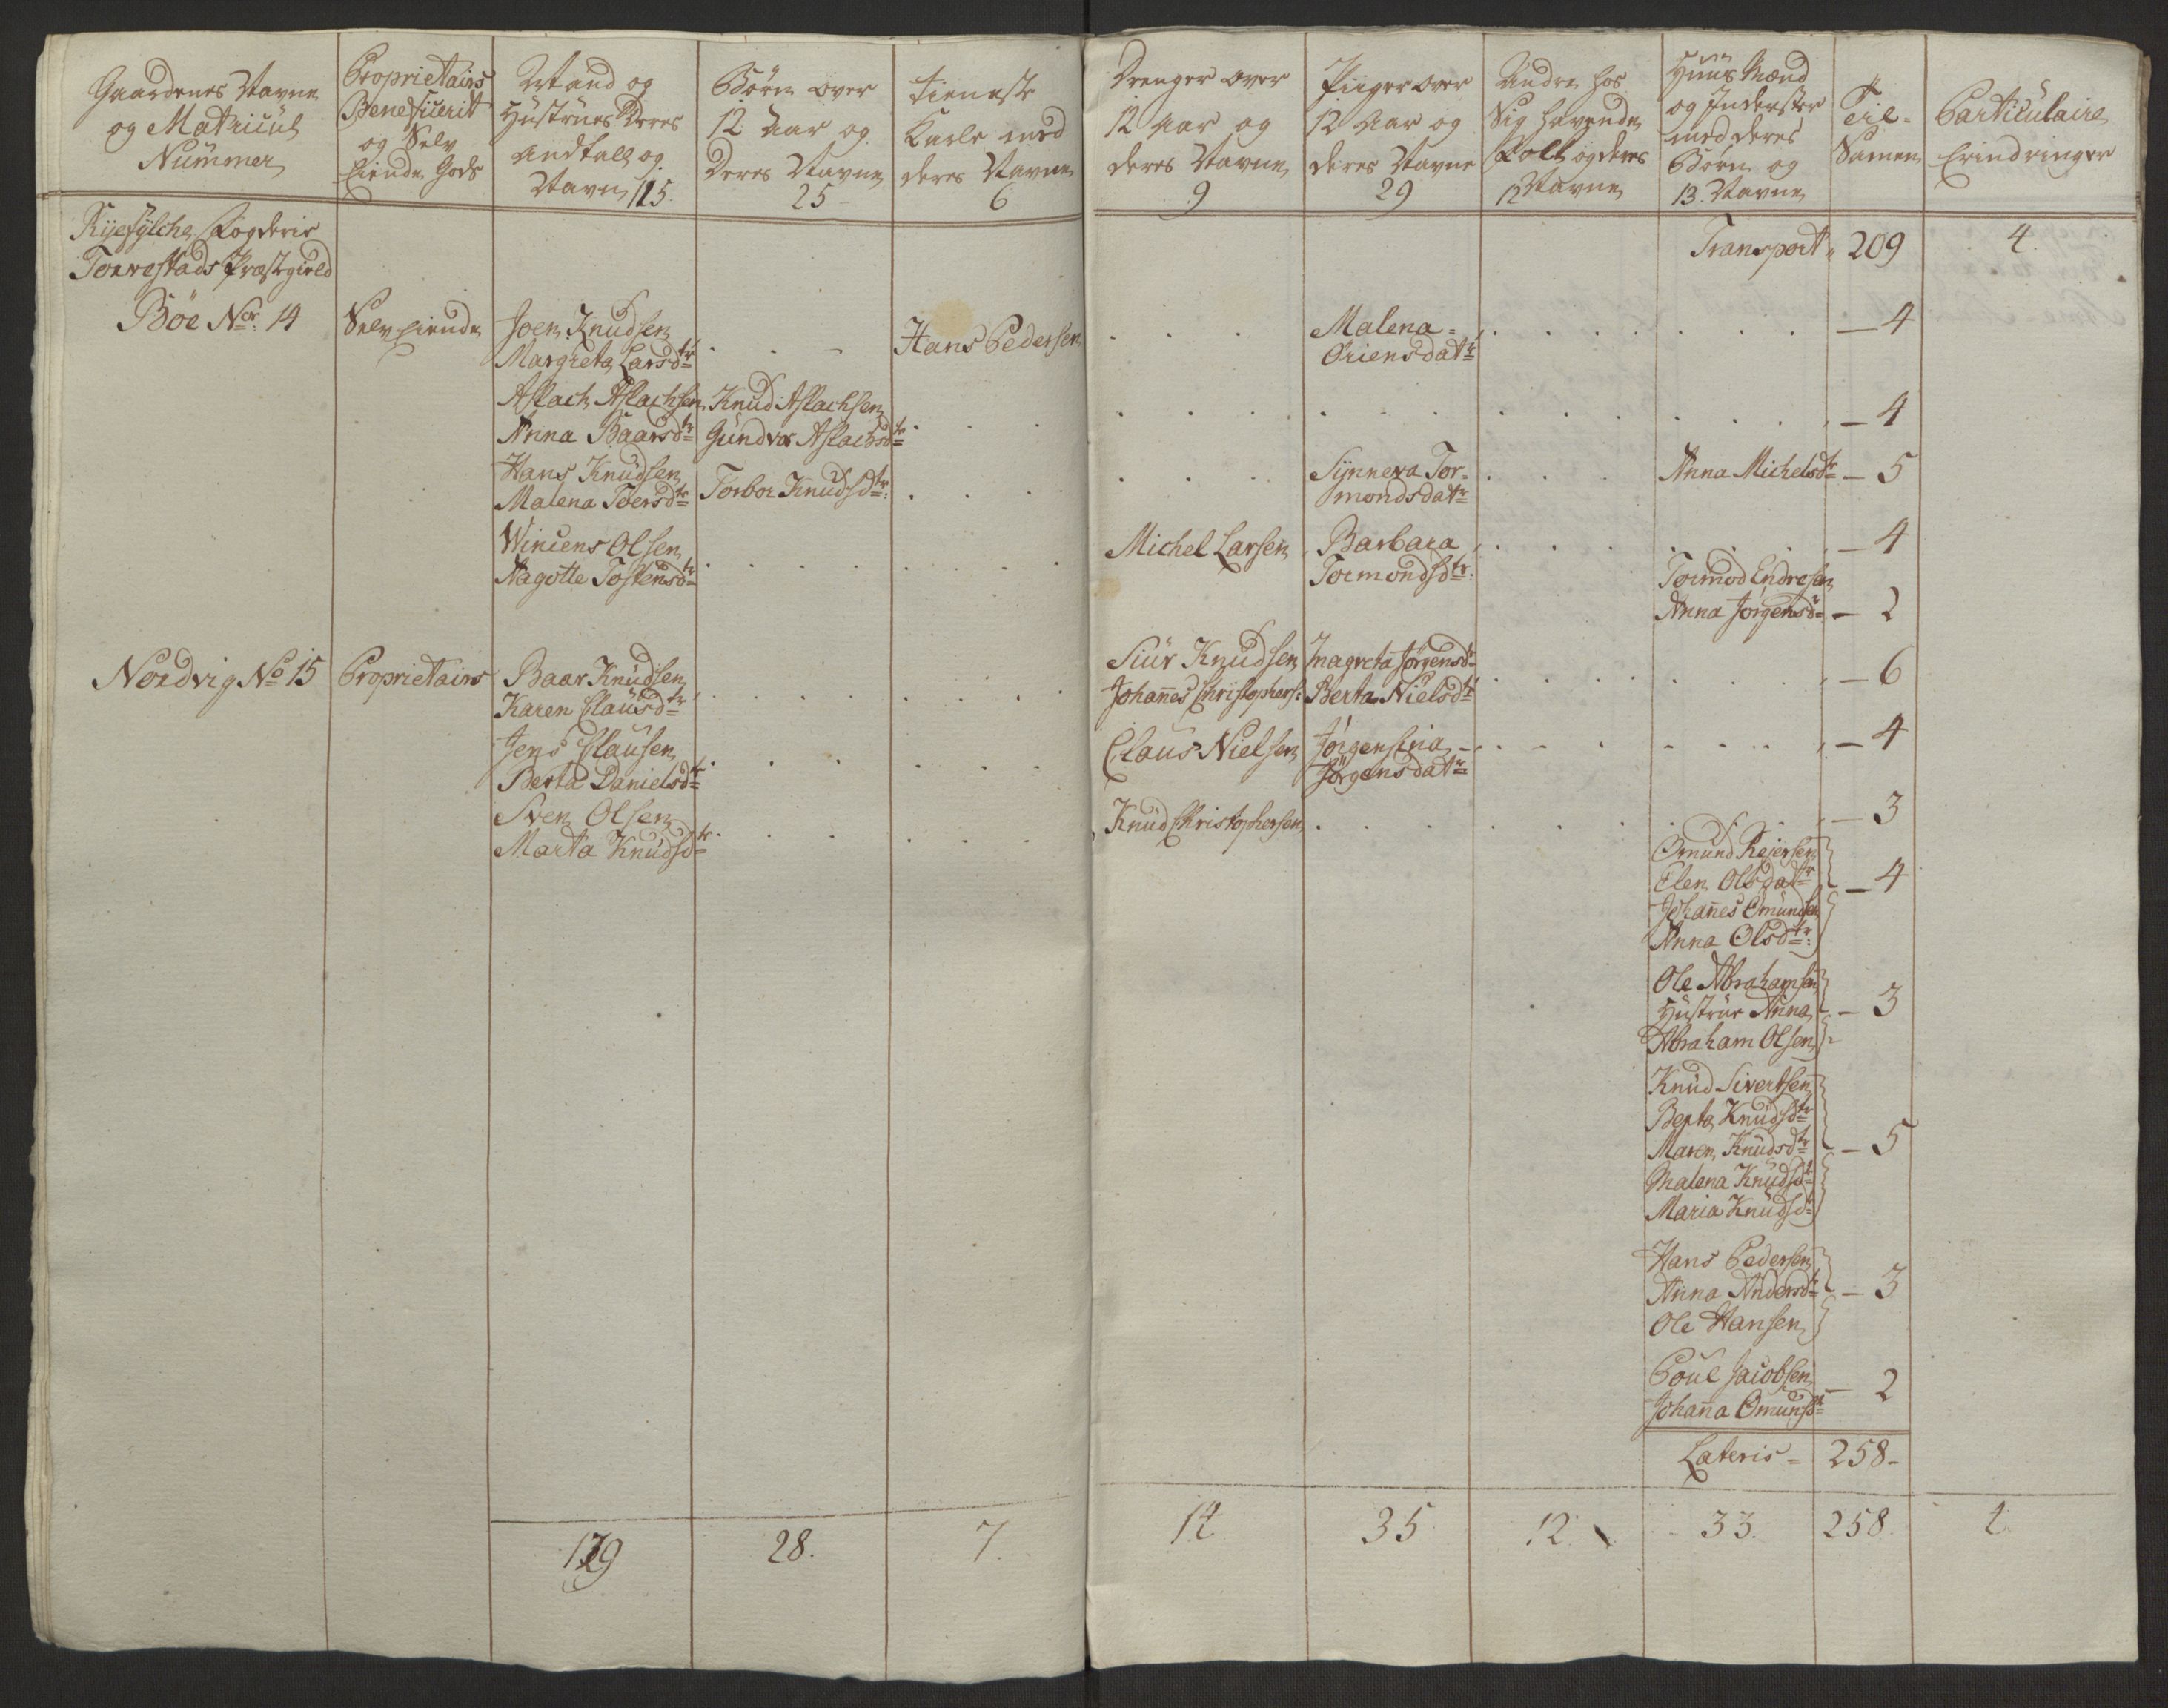 Gaardenes Navne
og Matricül
Nümmer
Proprietairs
Beneficerit
og Selv
Eiende Gods
Mænd og
Hüstrües Deres
Andtall og
Navn 115.
Börn over
12 Aar og
Deres Navne
25
Tieneste
Karle med
deres Navne
6
Drenger over
12 Aar og
deres Navne
9
Piiger over
12 Aar og
deres Navne
29
Andre hos
Sig havende
Folk og deres
12 Navne
Hüüs Mænd
og Inderster
med deres
Börn og
13. Navne
Til-
Samen
Particülaire
Erindringer
Ryefylche Fogderie
Torvestads Præstgield
Transport 209 4.
Böe No: 14 Selveiende Joen Knudsen
Margreta Larsdtr
Hans Pedersen
Malena
Oriensdatr
4
Aslach Aslachsen Knud Aslachsen
Anna Baarsdtr Gündvor Aslachsdtr
4
Hans Knudsen
Malena Toersdtr Torbor Knudsdtr:
Synneva Tor-
mondsdatr
Anna Michelsdtr 5
Winiens Olsen
Nagotte Tostensdtr
Michel Larsen Barbara
Tormondsdtr:
4
Tormod Endresen
Anna Jörgensdr 2
Nordvig No 15 Proprietairs Baar Knudsen
Karen Clausdtr
Siür Knudsen Inagreta Jörgensdtr
Johanes Christophers: Berta Nielsdtr
6
Jens Clausen
Berta Danielsdtr
Claus Nielsen Jörgensina
Jörgensdatr
4
Sven Olsen
Marta Knudsdtr
Knüd Christophersen
3
Omund Reiersen
Elen Olsdatr
Johanes Omundsen
Anna Olsdtr:
4
Ole Abrahamsen
Hüstrüe Anna
Abraham Olsen
3
Knüd Sivertsen
Berta Knudsdtr
Maren Knudsdtr
Malena Knudsdr
Maria Knudsdr
5
Hans Pedersen
Anna Andersdtr
Ole Hansen
3
Poul Jacobsen
Johana Omundsdtr
2
Lateris 258
28. 7. 14 35 12. 33. 258.